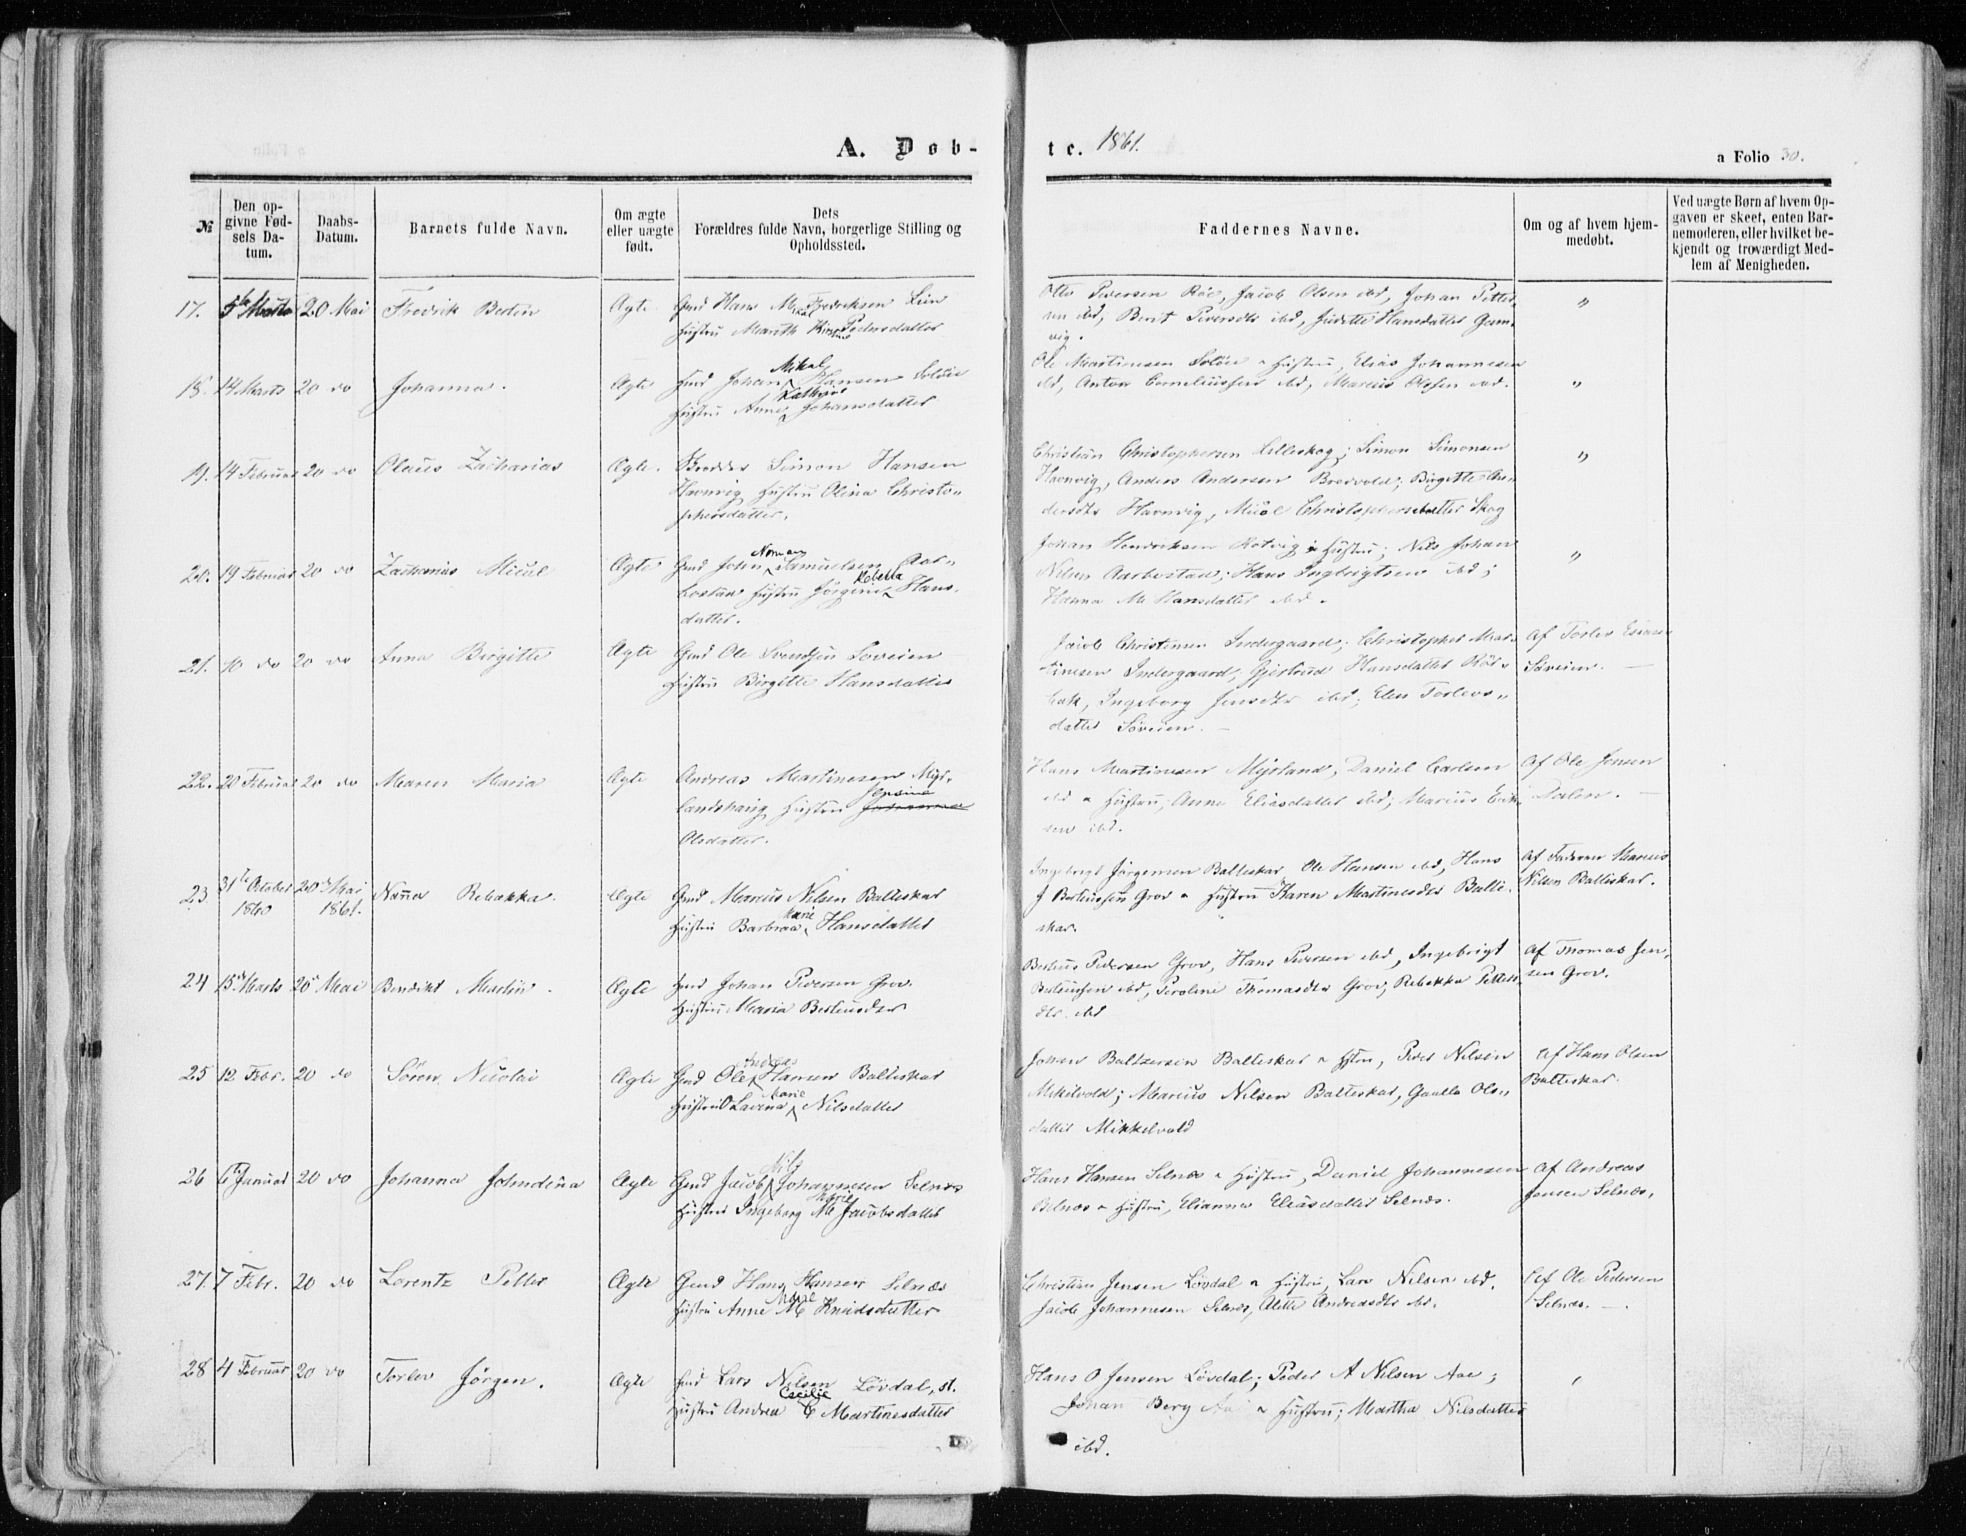 A. Døb-
te. 1861.
a Folio 30.
№
Den op-
givne Fød-
sels Da-
tum.
Daabs-
Datum.
Barnets fulde Navn.
Om ægte
eller uægte
født.
Dets
Forældres fulde Navn, borgerlige Stilling og
Opholdssted.
Faddernes Navne.
Om og af hvem hjem-
medøbt.
Ved uægte Børn af hvem Op-
gaven er skeet, enten Bar-
nemoderen, eller hvilket be-
kjendt og troværdigt Med-
lem af Menigheden.
17. Marts 20 Mai Fredrik Ægte Gmd Hans Fredriksen
Hustru Marith Pedersdatter
Otto Pedersen Jacob Olsen ibd, Johan Petter-
sen ibd, Berit Pedersdtr ibd, Hansdatter Gam-
vig.
"
18. 14 Marts 20 do Johanna. Ægte Gmd Johan Mikal Hansen
Hustru Anne Kathrine Johansdatter
Ole Martinsen Hustru, Elias Johannesen
ibd, Anton Corneliussen ibd, Marcus Olsen ibd.
"
19. 14 Februar 20 do Olaus Zacharias Ægte. Simon Hansen
Havnvig Hustru Olina Christo-
phersdatter.
Christian Christophersen Lilleskog; Simon Simonsen
Havnvig, Anders Andersen Bredvold; Birgitte An-
dersdtr Havnvig, Christophersdatter Skog
"
20. 19 Februar 20 do Zacharias Ægte Gmd John Samuelsen Aar-
bostad Hustru Rebekka Hans-
datter.
Johan Henriksen Hustru; Nils Johan
Nilsen Aarbostad; Hans Ingbrigtsen ibd;
Hanna M. Hansdatter ibd.
"
21. 10 do 20 do Anna Birgitte Ægte Gmd Ole Svendsen Soveien
Hustru Birgitte Hansdatter
Jacob Christensen Indergaard; Christopher Mar-
tinesen Indergaard, Gjertrud Hansdatter Røt-
bak, Ingeborg Jensdtr ibd; Elen Torlevs-
datter Søveien.
Af Torlev
Søveien.
22. 20 Februar 20 do Maren Maria Ægte Andreas Martinesen Myr-
landshaug Hustru
Olsdatter.
Hans Martinusen Myrland, Daniel Carlsen
ibd Hustru, Anne Eliasdatter ibd; Marius Erik-
sen ibd.
Af Ole Jensen
Dalen.
23. 31te October 20de Mai Nanna Rebekka. Ægte Gmd Marcus Nilsen Balteskar
1860 1861.
Hustru Barbraa Marie Hansdatter
Ingebrigt Jørgensen Balteskar Ole Hansen ibd, Hans
J Berteussen Grov Hustru Karen Martinesdtr Balte-
skar.
Af Faderen Marcus
Nilsen Balteskar.
24 15de Marts 20 Mai Bendikt Martin. Ægte Gmd Johan Pedersen Grov.
Hustru Maria
Berteus Pedersen Grov, Hans Pedersen ibd, Ingebrigt
Berteussen ibd, Thomasdtr Grov, Rebekka Petters-
dtr. ibd
Af Thomas Jen-
sen Grov.
25 12 Febr. 20 do Søren Nicolai Ægte Gmd Ole Andreas Hansen Balteskar
Hustru Lavina Marie Nilsdatter
Johan Baltzersen Balteskar Hstru, Peder Nilsen
Mikelvold; Marcus Nilsen Balteskar, Ols-
datter Mikkelvold
Af Hans Olsen
Balteskar.
26 6te Januar 20 do Johanna Johndina Ægte Gmd Jacob Nils Johannesen Selnæs
Hustru Ingeborg M Marie Jacobsdatter
Hans Hansen Selnæs Hustru, Daniel Johannesen
Selnæs Hustru, Elianna Eliasdatter Selnæs.
Af Andreas
Jensen Selnæs.
27. 7 Febr. 20 do Lorentz Petter Ægte Gmd Hans Hansen Selnæs
Hustru Anne M Marie Knudsdatter
Christian Jensen Løvdal Hustru, Lars Nilsen ibd.
Jacob Johannesen Selnæs, Andreasdtr ibd.
Af Ole Pedersen
Selnæs.
28 4 Februar 20 do Torlev Jørgen. Ægte Gmd Lars Nilsen Løvdal, st.
Hustru Andrea C Cecilie Martinesdatter
Hans O Jensen Løvdal; Peder A Nilsen Aae;
Johan Berg Hustru; Martha Nilsdatter
ibd.